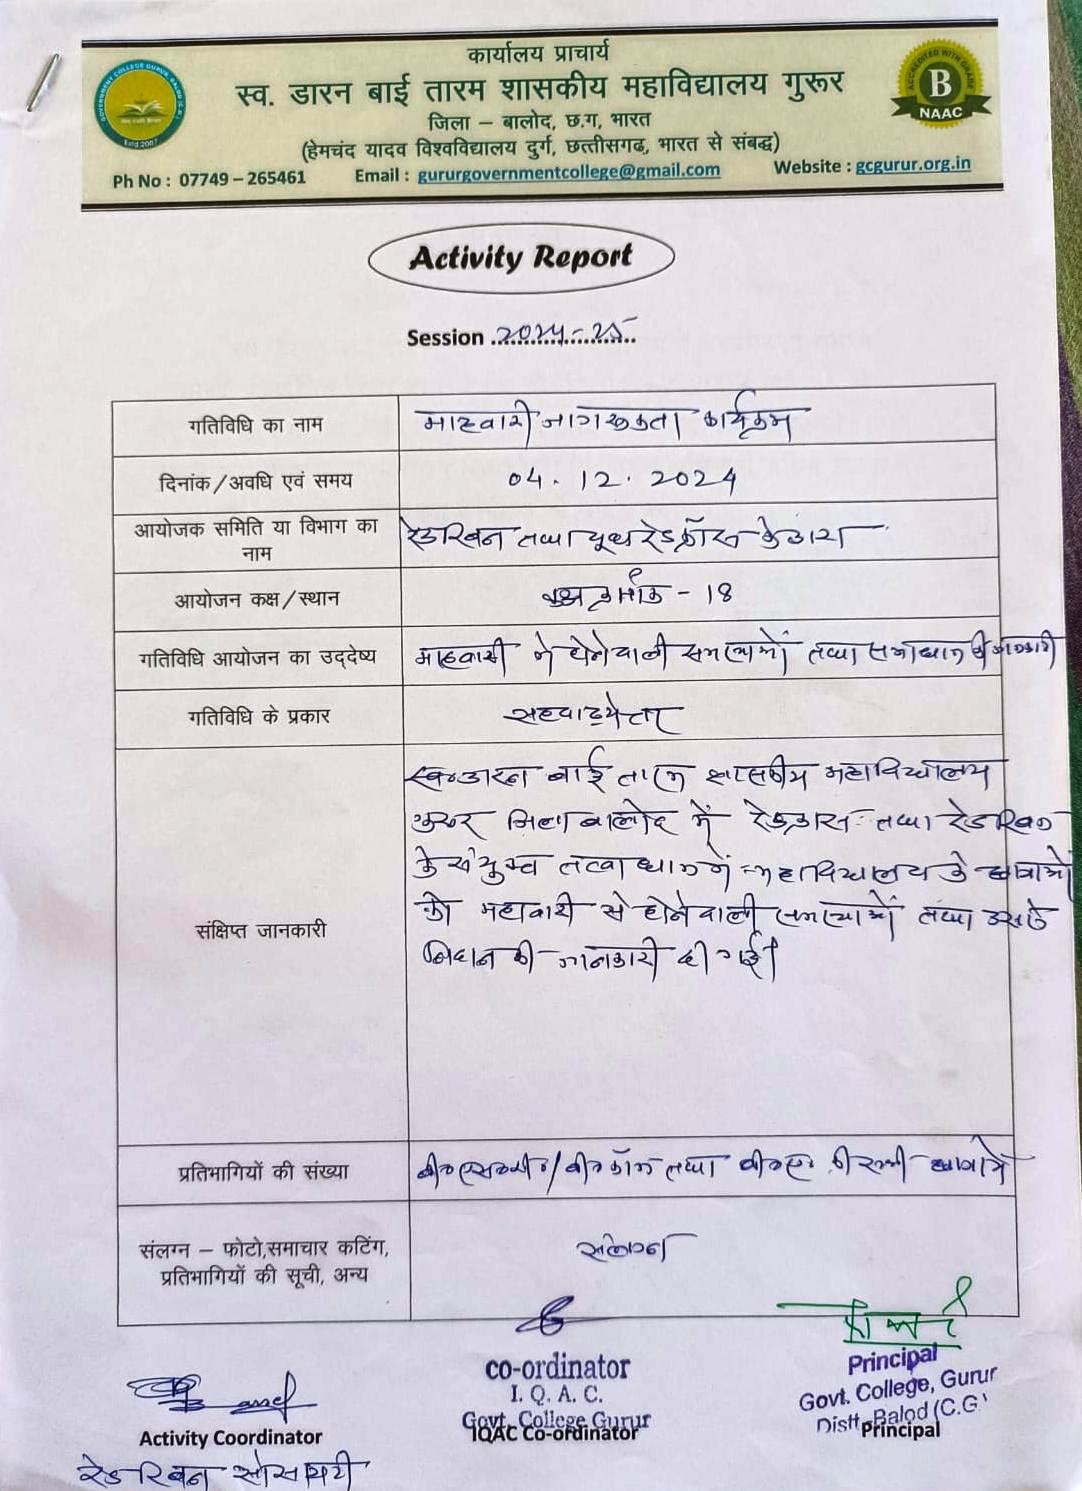 कार्यालय प्राचार्य
स्व. डारन बाई तारम शासकीय महाविद्यालय गुरूर
जिला – बालोद, छ.ग, भारत
(हेमचंद यादव विश्वविद्यालय दुर्ग, छत्तीसगढ, भारत से संबद्ध)
Ph No : 07749 – 265461 Email : gururgovernmentcollege@gmail.com Website : gcgurur.org.in
GOVERNMENT COLLEGE GURUR, BALOD (C.G.)
Estd 2007
ACCREDITED WITH GRADE
B
NAAC
Activity Report
Session 2024-25
गतिविधि का नाम माहवारी जागरूकता कार्यक्रम
दिनांक/अवधि एवं समय 04.12.2024
आयोजक समिति या विभाग का
नाम
रेडरिबन तथा यूथ रेडक्रॉस के द्वारा
आयोजन कक्ष/स्थान कक्ष क्रमांक - 18
गतिविधि आयोजन का उद्देष्य माहवारी में होने वाली समस्याओं तथा समाधान की जानकारी
गतिविधि के प्रकार सहपाठ्येत्तर
संक्षिप्त जानकारी
स्व० डारन बाई तारम शासकीय महाविद्यालय
गुरूर जिला बालोद में रेडक्रास तथा रेडरिबन
के संयुक्त तत्वाधान में महाविद्यालय के छात्राओं
को महावारी से होने वाली समस्याओं तथा उसके
निदान की जानकारी दी गई।
प्रतिभागियों की संख्या बी०एस०सी०/बी०कॉम तथा बी०ए० की सभी छात्राएं
संलग्न – फोटो,समाचार कटिंग,
प्रतिभागियों की सूची, अन्य
संलग्न
Activity Coordinator
रेड रिबन सोसायटी
co-ordinator
I. Q. A. C.
Govt. College Gurur
IQAC Co-ordinator
Principal
Govt. College, Gurur
Distt.-Balod (C.G.)
Principal